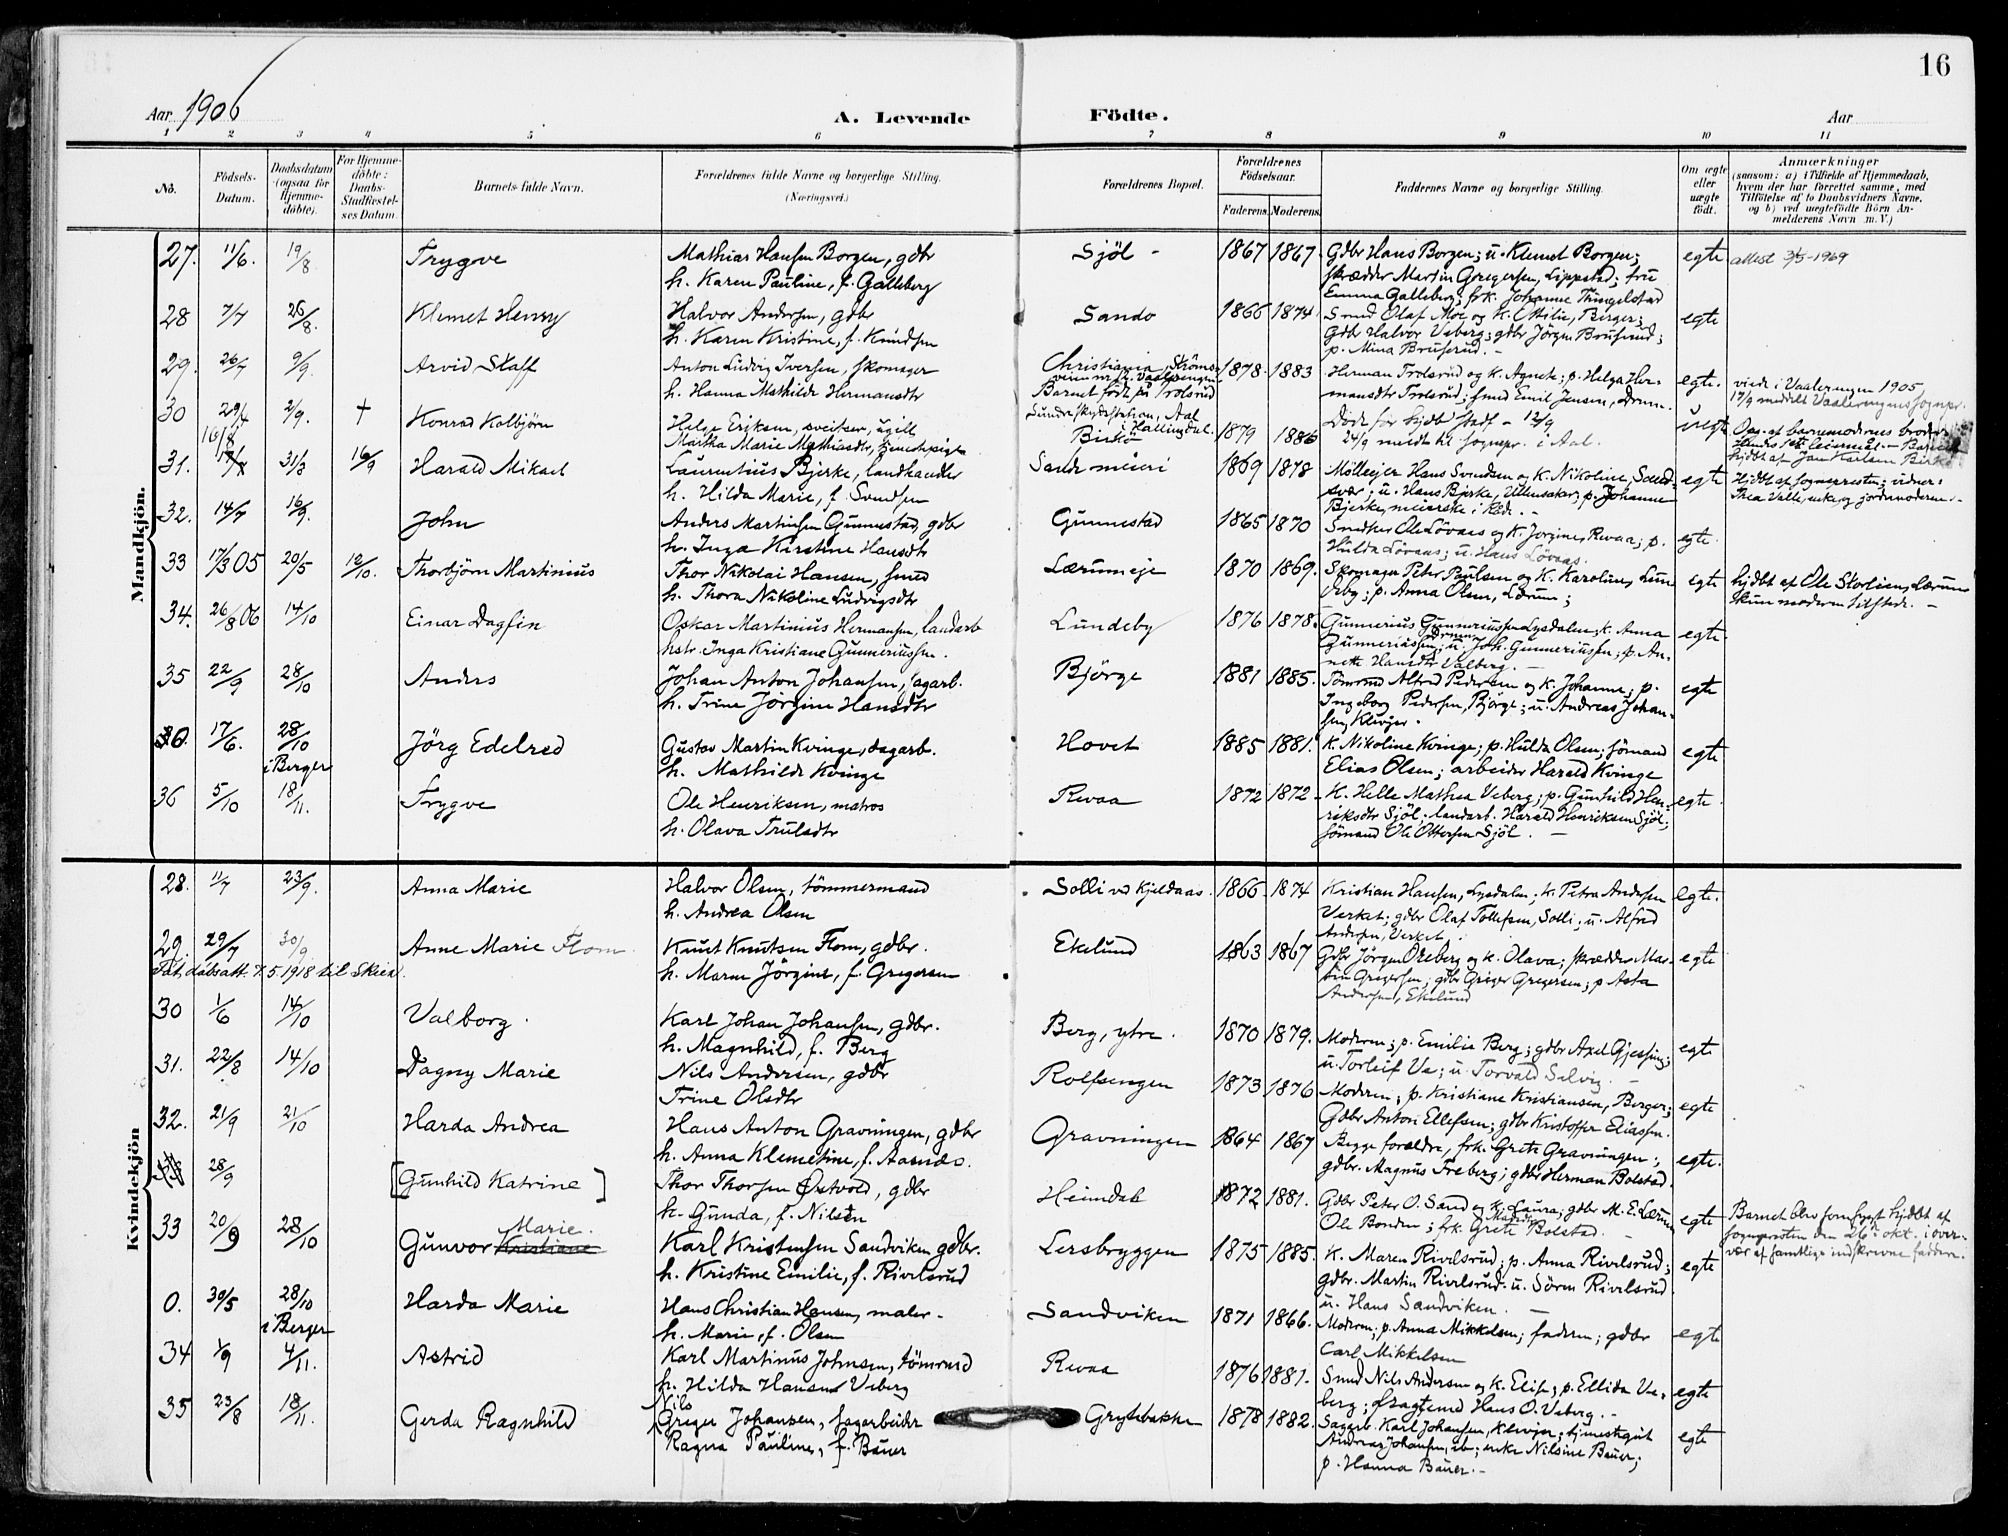 16
Aar 1906
A. Levende Födte.
Aar
1 2 3 4 5 6 7 8 9 10 11
No.
Födsels-Datum.
Daabsdatum (ogsaa for Hjemme-döbte).
For Hjemme-döbte: Daabs-Stadfæstel-ses Datum.
Barnets fulde Navn.
Forældrenes fulde Navne og borgerlige Stilling. (Næringsvei.)
Forældrenes Bopæl.
Forældrenes Födselsaar.
Faderens. Moderens.
Faddernes Navne og borgerlige Stilling.
Om ægte eller uægte födt.
Anmærkninger
(saasom: a) i Tilfælde af Hjemmedaab,
hvem der har forrettet samme, med
Tilföielse af to Daabsvidners Navne,
og b) ved uægtefödte Börn An-
melderens Navn m. V.)
Mandkjön.
27. 11/6. 19/8 Trygve Mathias Hansen Borgen, gdbr Sjöl - 1867 1867 Gdbr Hans Borgen; u. Klemet Borgen; egte attest 3/5-1969
h. Karen Pauline, f. Galleberg skrædder Martin Gregersen, Lippstad; fru
Emma Galleberg; frk. Johanne Tingelstad
28 7/7 26/8. Klemet Henry Halvor Andersen, gdbr Sando 1866 1874 Smed Olaf Moe og k. Ottilie, Berger; egte
h. Karen Kristine, f. Knudsen Gdbr Halvor Veberg; gdbr Jörgen Bruserud;
p. Mina Bruserud. -
29. 26/7 9/9. Arvid Staff Anton Ludvig Iversen, skomager Christiania, Ströms- 1878 1883 Herman Trolsrud og k. Agnete; p. Helga Her- egte. viede i Vaalerengen 1905,
h. Hanna Mathilde Hermansdtr Barnet födt på Trolsrud mansdtr Trolsrud; smed Emil Jensen, Dram. 17/9 meddelt Vaalerengens sognepr.
30 29/4 2/9. † Konrad Kolbjörn Helge Eriksen, sveitser, ugift i Hallingdal. 1879 1886 Döde för hjdbt stadf - 12/9 uegte
Martha Marie Mathiasdtr, tjenestepige Birkö 24/9 meldt til sognepr. i Aal.
hjdbt af Jan Karlsen Birkö
31. 31/8 16/9 Harald Mikael Laurentius Bjerke, landhandler Sande meieri 1869 1878 Mölleeier Hans Svendsen og k. Nikoline, egte Hjdbt af sognepresten; vidner:
h. Hilda Marie, f. Svendsen u. Hans Bjerke, Ullensaker; p. Johanne Thea Valle, enke og jordmoderen. -
Bjerke, meierske i Råde. -
32. 14/7 16/9. John Anders Martinsen Gunnestad, gdbr Gunnestad 1865 1870 Snedker Ole Lövaas og k. Jorgine, Revaa; p. egte.
h. Inga Kirstine Hansdtr Hulda Lövaas; u. Hans Lövaas.
33 17/3 05 20/5 Thorbjörn Martinius Thor Nikolai Hansen, smed Lærumeje 1870 1869. Skomager Peter Paulsen og k. Karoline, egte hjdbt af Ole Storlien, Lærum
h. Thora Nikoline Ludvigsdtr p. Anna Olsen, Lærum; kun moderen tilstede. -
34. 26/8 06 14/10 Einar Dagfin Oskar Martinius Hermansen, landarb Lundeby 1876 1878. Gunnerius Gunneriussen Lysdalen; k. Anna egte.
hstr. Inga Kristiane Gunneriussen. Gunneriussen; u. Joh. Gunneriussen; p. An-
nette Hansdtr Valberg. -
35 22/9 28/10 Anders Johan Anton Johansen, sagarb. Björge 1881 1885. Tömrmd Alfred Pedersen og k. Johanne; p. egte
h. Trine Jörgine Hansdtr Ingeborg Pedersen, Björge; u. Andreas Johan-
sen, Klevjer.
0. 17/6. 28/10 i Berger Jörg Edelred Gustav Martin Kvinge, dagarb. Hovet 1885 1881. K. Nikoline Kvinge; p. Hulda Olsen; sömand egte
h. Mathilde Kvinge Elias Olsen; arbeider Harald Kvinge
36 5/10 18/11. Trygve Ole Henriksen, matros Revaa 1872 1872 K. Helle Mathea Veberg; p. Gunhild Hen- egte.
h. Olava Trulsdtr riksdtr Sjöl; landarb. Harald Henriksen Sjöl;
sömand Ole Ottersen Sjöl. -
Kvindekjön
28. 11/7 23/9. Anna Marie Halvor Olsen, tömmermand Solli ved Kjeldaas. 1866 1874 Kristian Hansen, Lysdalen; k. Petra Andersen egte.
h. Andrea Olsen Verket; gdbr Olaf Tollefsen, Solli; u. Alfred
Andersen, Verket.
29. 29/7 30/9 Anne Marie Flom Knut Knutsen Flom, gdbr. Ekelund 1863 1867 Gdbr Jörgen Oreberg og k. Olava; skrædder Mar- egte
dåbsatt. 7.5.1918 til Skien. h. Maren Jörgine, f. Gregersen tin Gregersen; gdbr Greger Gregersen; p Asta
Andersen, Ekelund
30 1/6 14/10 Valborg. Karl Johan Johansen, gdbr. Berg, ytre. 1870 1879. Moderen; p. Emilie Berg; gdbr Axel Gjessing; egte
h. Magnhild, f. Berg u. Torleif Ve; u. Torvald Selvig. -
31. 22/8 14/10 Dagny Marie Nils Andersen, gdbr Rolfsengen 1873 1876 Moderen; p. Kristiane Kristiansen, Berger; egte
Trine Olsdtr Gdbr Anton Ellefsen; gdbr Kristoffer Eliassen.
32. 21/9 21/10 Harda Andrea Hans Anton Gravningen, gdbr Gravningen 1864 1867 Begge forældre, frk. Grete Gravningen; egte.
h. Anna Klemetine, f. Aasnæs. gdbr. Magnus Freberg; gdbr Herman Bolstad.
28/9 [Gunhild Katrine] Thor Thorsen Östvold, gdbr Heimdal 1872 1881. Gdbr Peter O. Sand og k. Laura; gdbr M. E. Lærum egte Barnet blev hjdbt af
h. Gunda, f. Nilsen Ole Bonden; frk. Grete Bolstad. - sognepresten den 26 okt. i over-
vær af samtlige indskrevne faddere.
33 20/9 28/10 Gunvor Kristiane Marie. Karl Kristensen Sandviken gdbr. Lersbryggen 1875 1885. K. Maren Rivelsrud; p. Anna Rivelsrud; egte
h. Kristine Emilie, f. Rivelsrud gdbr. Martin Rivelsrud. u. Sören Rivelsrud.
u. Hans Sandviken. -
0. 30/5 28/10 i Berger Harda Marie Hans Christian Hansen, maler. Sandviken 1871 1866. Moderen; p. Anna Mikkelsen; faderen; gdbr egte
h. Marie, f. Olsen Carl Mikkelsen
34 1/9 4/11. Astrid Karl Martinus Johnsen, tömrmd Revaa 1876 1881. Smed Nils Andersen og k. Elise; p. Ellida Ve- egte
h. Hilda Hansen Veberg berg; fragtemd Hans O. Veberg. -
35 23/8 18/11. Gerda Ragnhild Nils Greger Johansen, sagarbeider Grytebakke 1878 1882. Sagarb. Karl Johansen, Klevjer; tjenestegut egte
Ragna Pauline, f. Bauer Andreas Johansen, ib; enke Nilsine Bauer;
p. Hanna Bauer. -